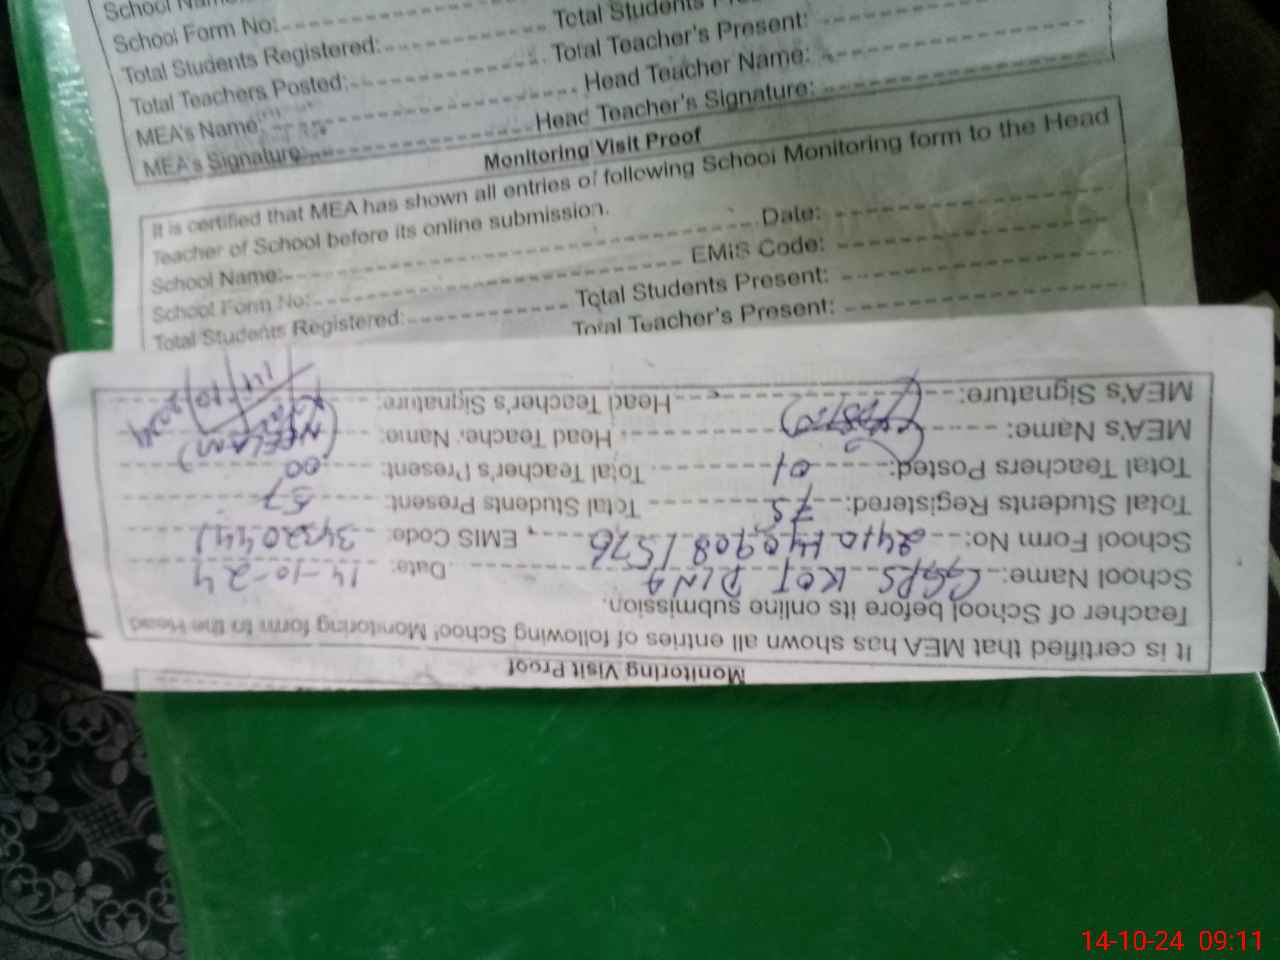 School Form No:
Total Students
Total Students Registered:
Total Teacher's Present:
Total Teachers Posted:
Head Teacher Name:
MEA's Name
Head Teacher's Signature:
MEA's Signature:
Monitoring Visit Proof
It is certified that MEA has shown all entries of following School Monitoring form to the Head
Teacher of School before its online submission.
School Name: Date:
School Form No: EMIS Code:
Total Students Registered: Total Students Present:
Total Teacher's Present:
Monitoring Visit Proof
It is certified that MEA has shown all entries of following School Monitoring form to the Head
Teacher of School before its online submission.
School Name: GGPS KOT DINA Date: 14-10-24
School Form No: EMIS Code:
Total Students Registered: 75 Total Students Present: 57
Total Teachers Posted: 01 Total Teacher's Present: 00
MEA's Name: Head Teacher Name: (NEELAM)
MEA's Signature: Head Teacher's Signature:
14/10/2024
14-10-24 09:11